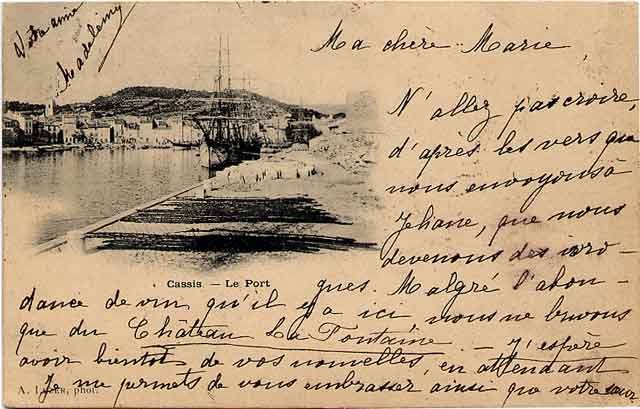 Votre amie
Madeleine
Ma chère Marie
N'allez pas croire
d'après les vers que
nous envoyons à
Jehane, que nous
devenons des ivro-
gnes. Malgré l'abon-
Cassis. — Le Port
dance de vin qu'il y a ici nous ne buvons
que du Château La Fontaine — J'espère
avoir bientot de vos nouvelles, en attendant
Je me permets de vous embrasser ainsi que votre sœur
phot.